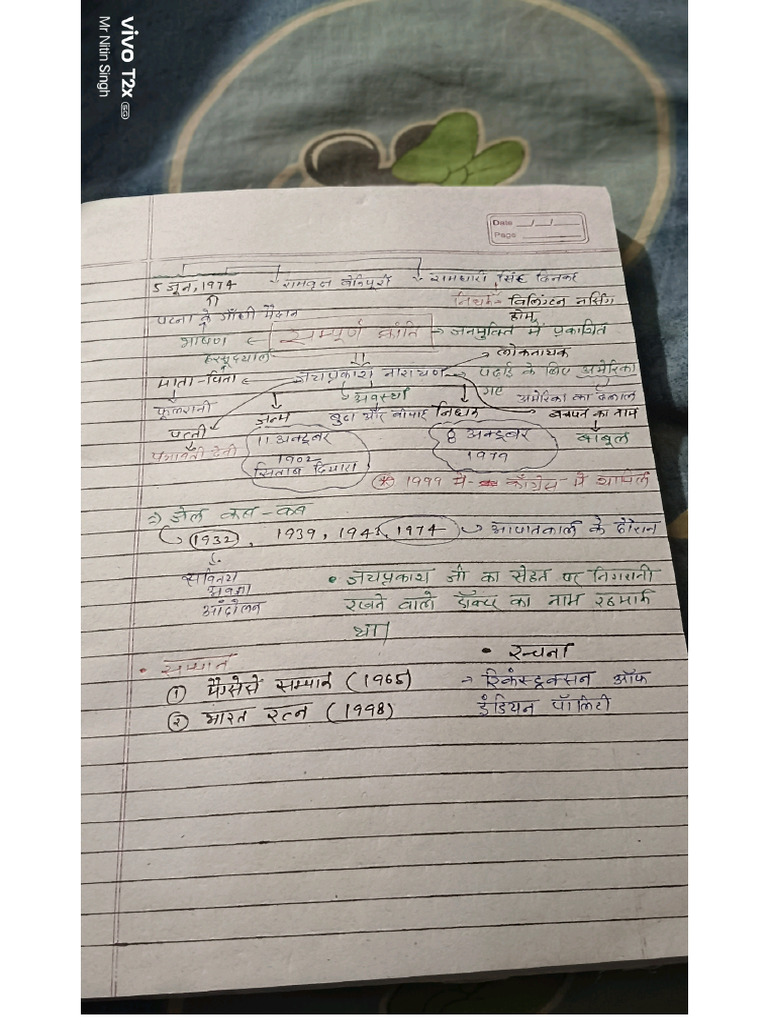 vivo T2x 5G
Mr Nitin Singh
Date
Page
5 जून, 1974 रामवृक्ष बेनीपुरी रामधारी सिंह दिनकर
पटना के गाँधी मैदान निधन - विलिंग्टन नर्सिंग
होम
भाषण सम्पूर्ण क्रांति → जनमुक्ति में प्रकाशित
हरसूदयाल लोकनायक
माता-पिता जयप्रकाश नारायण पढ़ाई के लिए अमेरिका
गए
फूलरानी अवस्था अमेरिका का बंगाल
पत्नी जन्म बुढ़ा और बीमार निधन बचपन का नाम
प्रभावती देवी 11 अक्टूबर 8 अक्टूबर बाबूल
1902 1979
सिताब दियारा
1999 में कांग्रेस में शामिल
⇒ जेल कब-कब
1932, 1939, 1941, 1974 आपातकाल के दौरान
सविनय
अवज्ञा
आंदोलन
• जयप्रकाश जी का सेहत पर निगरानी
रखने वाले डॉक्टर का नाम रहमान
था।
• सम्मान
① मैग्सेसे सम्मान (1965)
② भारत रत्न (1998)
• रचना
→ रिकंस्ट्रक्सन ऑफ
इंडियन पॉलिटी